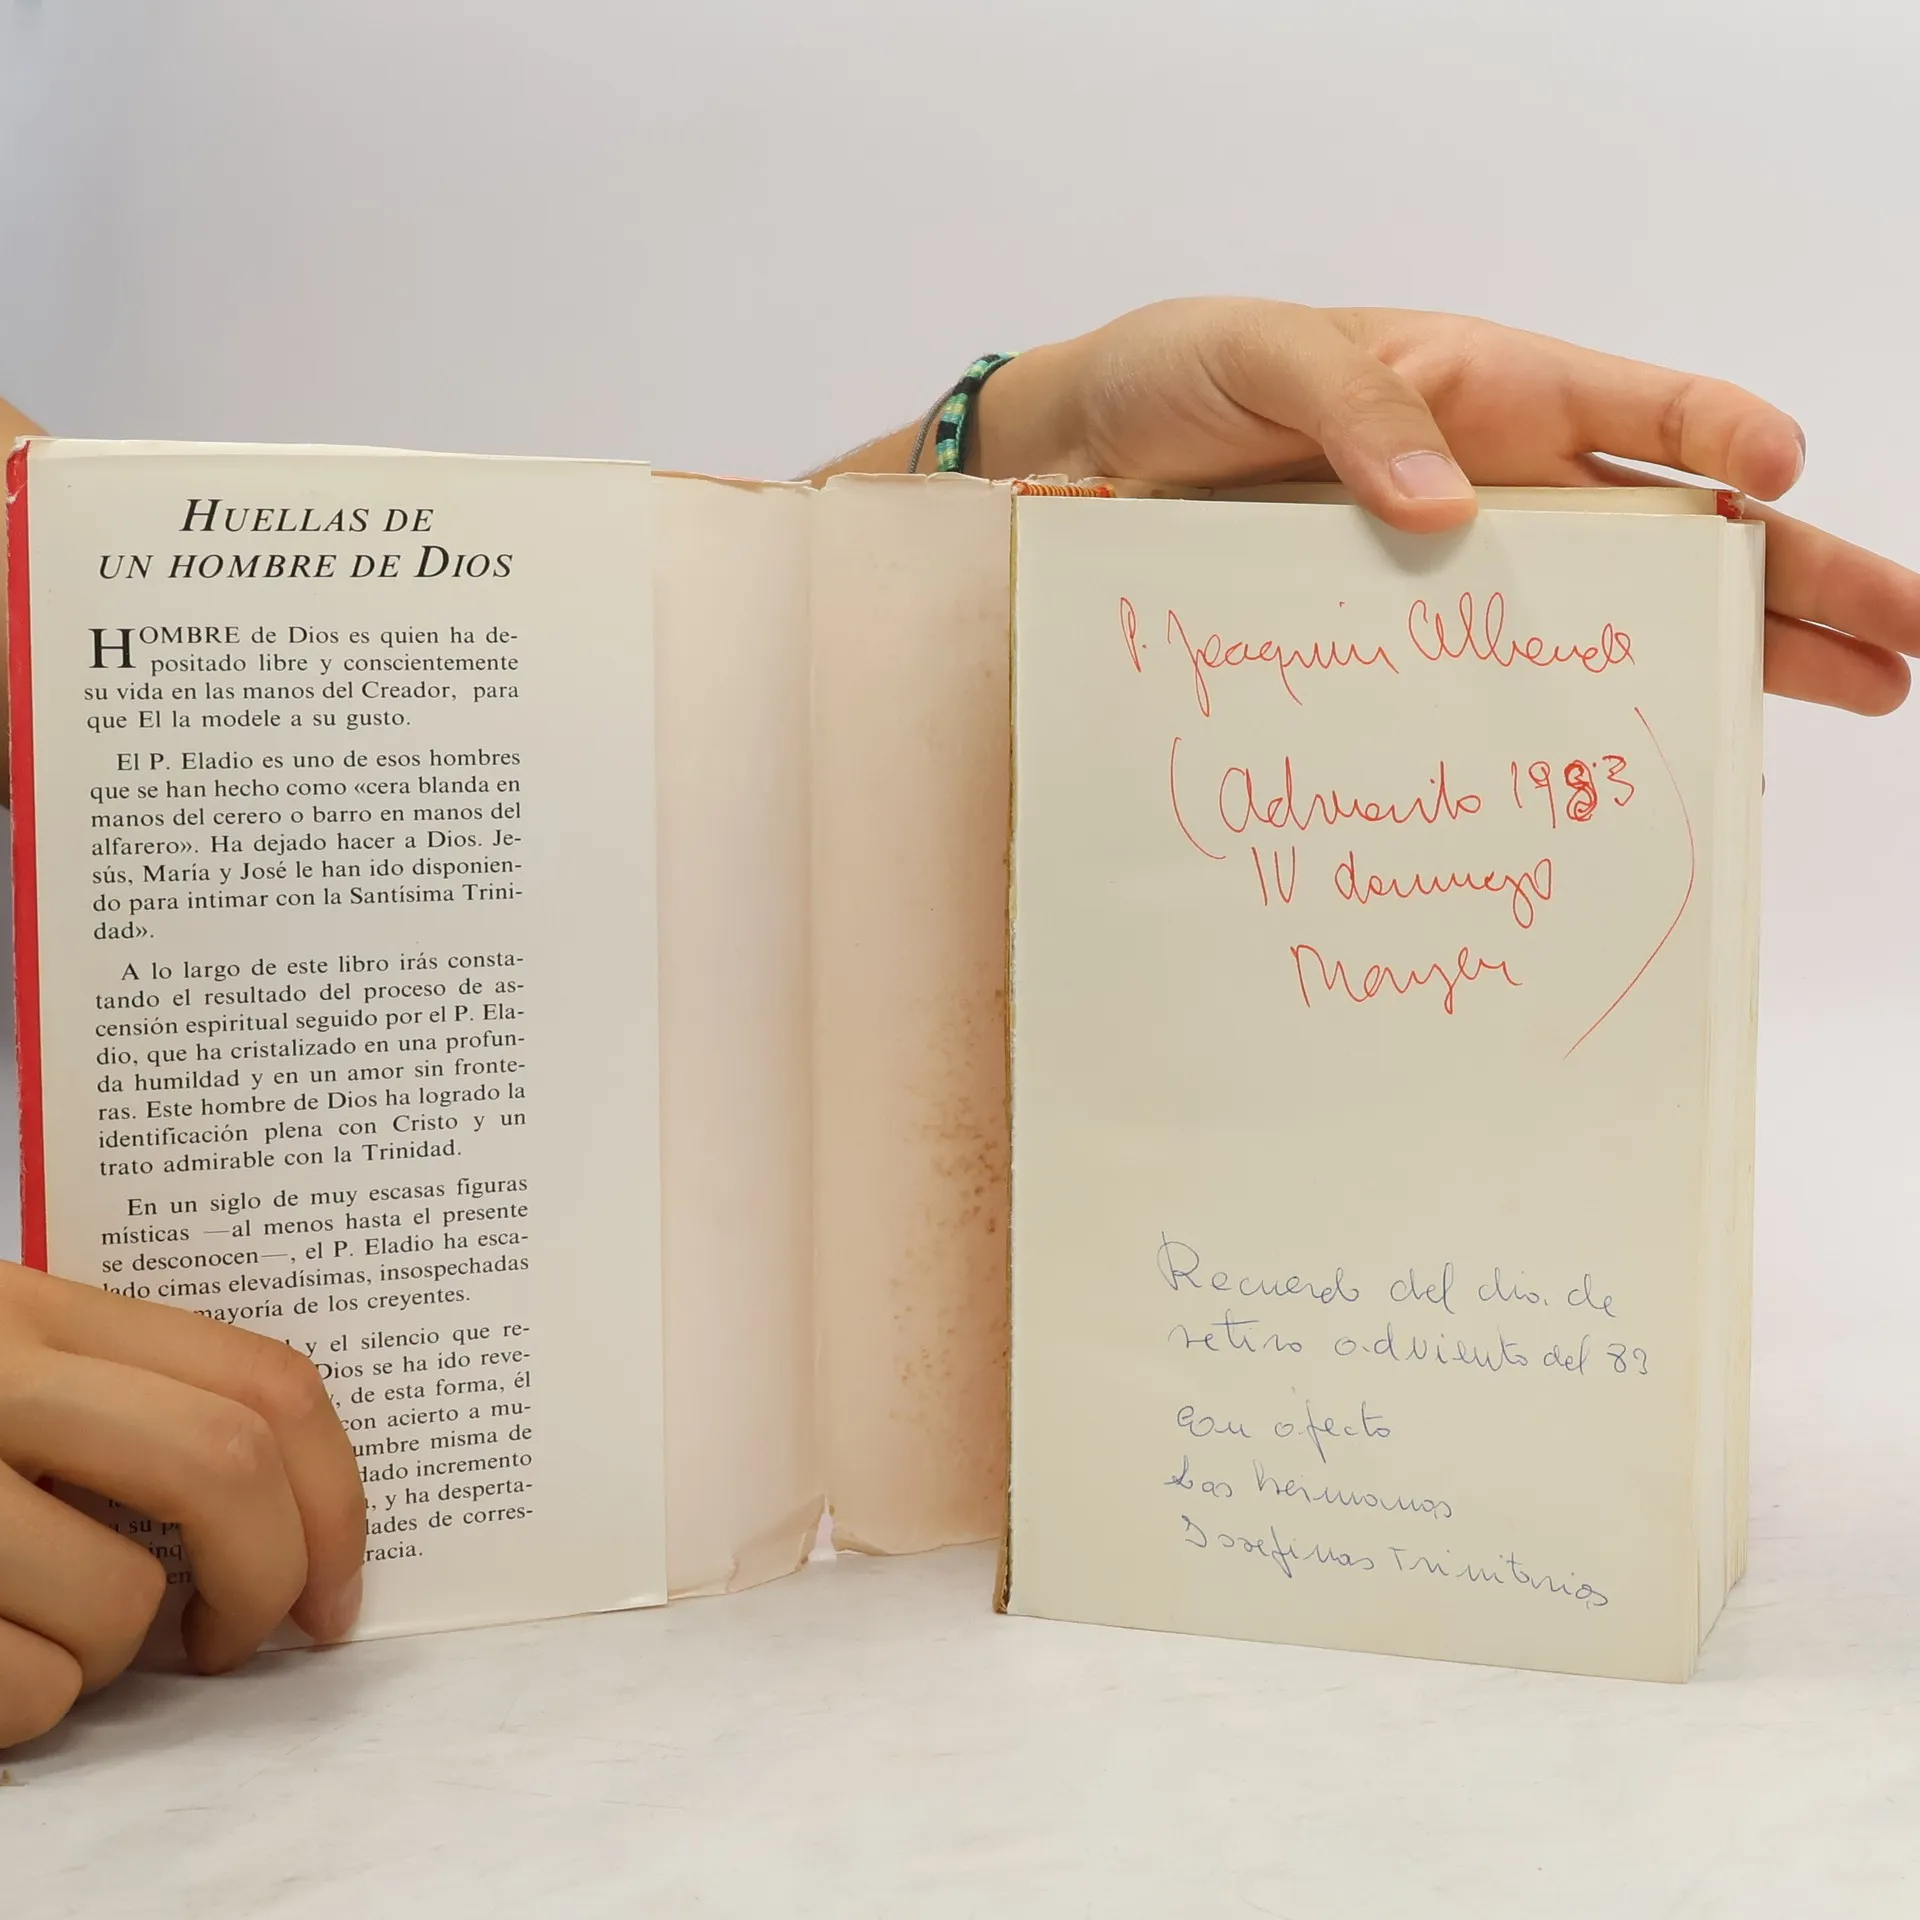 HUELLAS DE
UN HOMBRE DE DIOS
HOMBRE de Dios es quien ha de-
positado libre y conscientemente
su vida en las manos del Creador, para
que El la modele a su gusto.
El P. Eladio es uno de esos hombres
que se han hecho como «cera blanda en
manos del cerero o barro en manos del
alfarero». Ha dejado hacer a Dios. Je-
sús, María y José le han ido disponien-
do para intimar con la Santísima Trini-
dad».
A lo largo de este libro irás consta-
tando el resultado del proceso de as-
censión espiritual seguido por el P. Ela-
dio, que ha cristalizado en una profun-
da humildad y en un amor sin fronte-
ras. Este hombre de Dios ha logrado la
identificación plena con Cristo y un
trato admirable con la Trinidad.
En un siglo de muy escasas figuras
místicas —al menos hasta el presente
se desconocen—, el P. Eladio ha esca-
lado cimas elevadísimas, insospechadas
mayoría de los creyentes.
y el silencio que re-
Dios se ha ido reve-
, de esta forma, él
con acierto a mu-
umbre misma de
dado incremento
, y ha desperta-
dades de corres-
racia.
su
inq
en
P. Joaquín Allende
(Adviento 1983
IV domingo
)
Recuerdo del dia de
retiro adviento del 83
Con afecto
Las hermanas
Josefinas Trinitarias